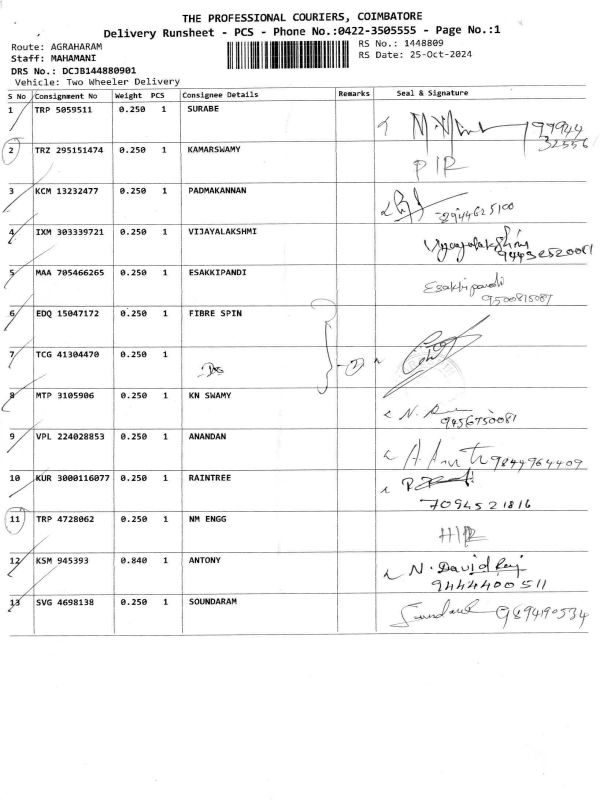 THE PROFESSIONAL COURIERS, COIMBATORE
Delivery Runsheet - PCS - Phone No.:0422-3505555 - Page No.:1
Route: AGRAHARAM
RS No.: 1448809
Staff: MAHAMANI
RS Date: 25-Oct-2024
DRS No.: DCJB144880901
Vehicle: Two Wheeler Delivery
S No Consignment No Weight PCS Consignee Details Remarks Seal & Signature
1 TRP 5059511 0.250 1 SURABE 99944
32556
2 TRZ 295151474 0.250 1 KAMARSWAMY
3 KCM 13232477 0.250 1 PADMAKANNAN 8944625100
4 IXM 303339721 0.250 1 VIJAYALAKSHMI Vijayalakshmi
5 MAA 705466265 0.250 1 ESAKKIPANDI Esakkipandi
9500815087
6 EDQ 15047172 0.250 1 FIBRE SPIN
7 TCG 41304470 0.250 1 2
8 MTP 3105906 0.250 1 KN SWAMY
9456750081
9 VPL 224028853 0.250 1 ANANDAN 9844964409
10 KUR 3000116077 0.250 1 RAINTREE
7094521816
11 TRP 4728062 0.250 1 NM ENGG
12 KSM 945393 0.840 1 ANTONY N. David Raj
9444400511
13 SVG 4698138 0.250 1 SOUNDARAM 9894190534